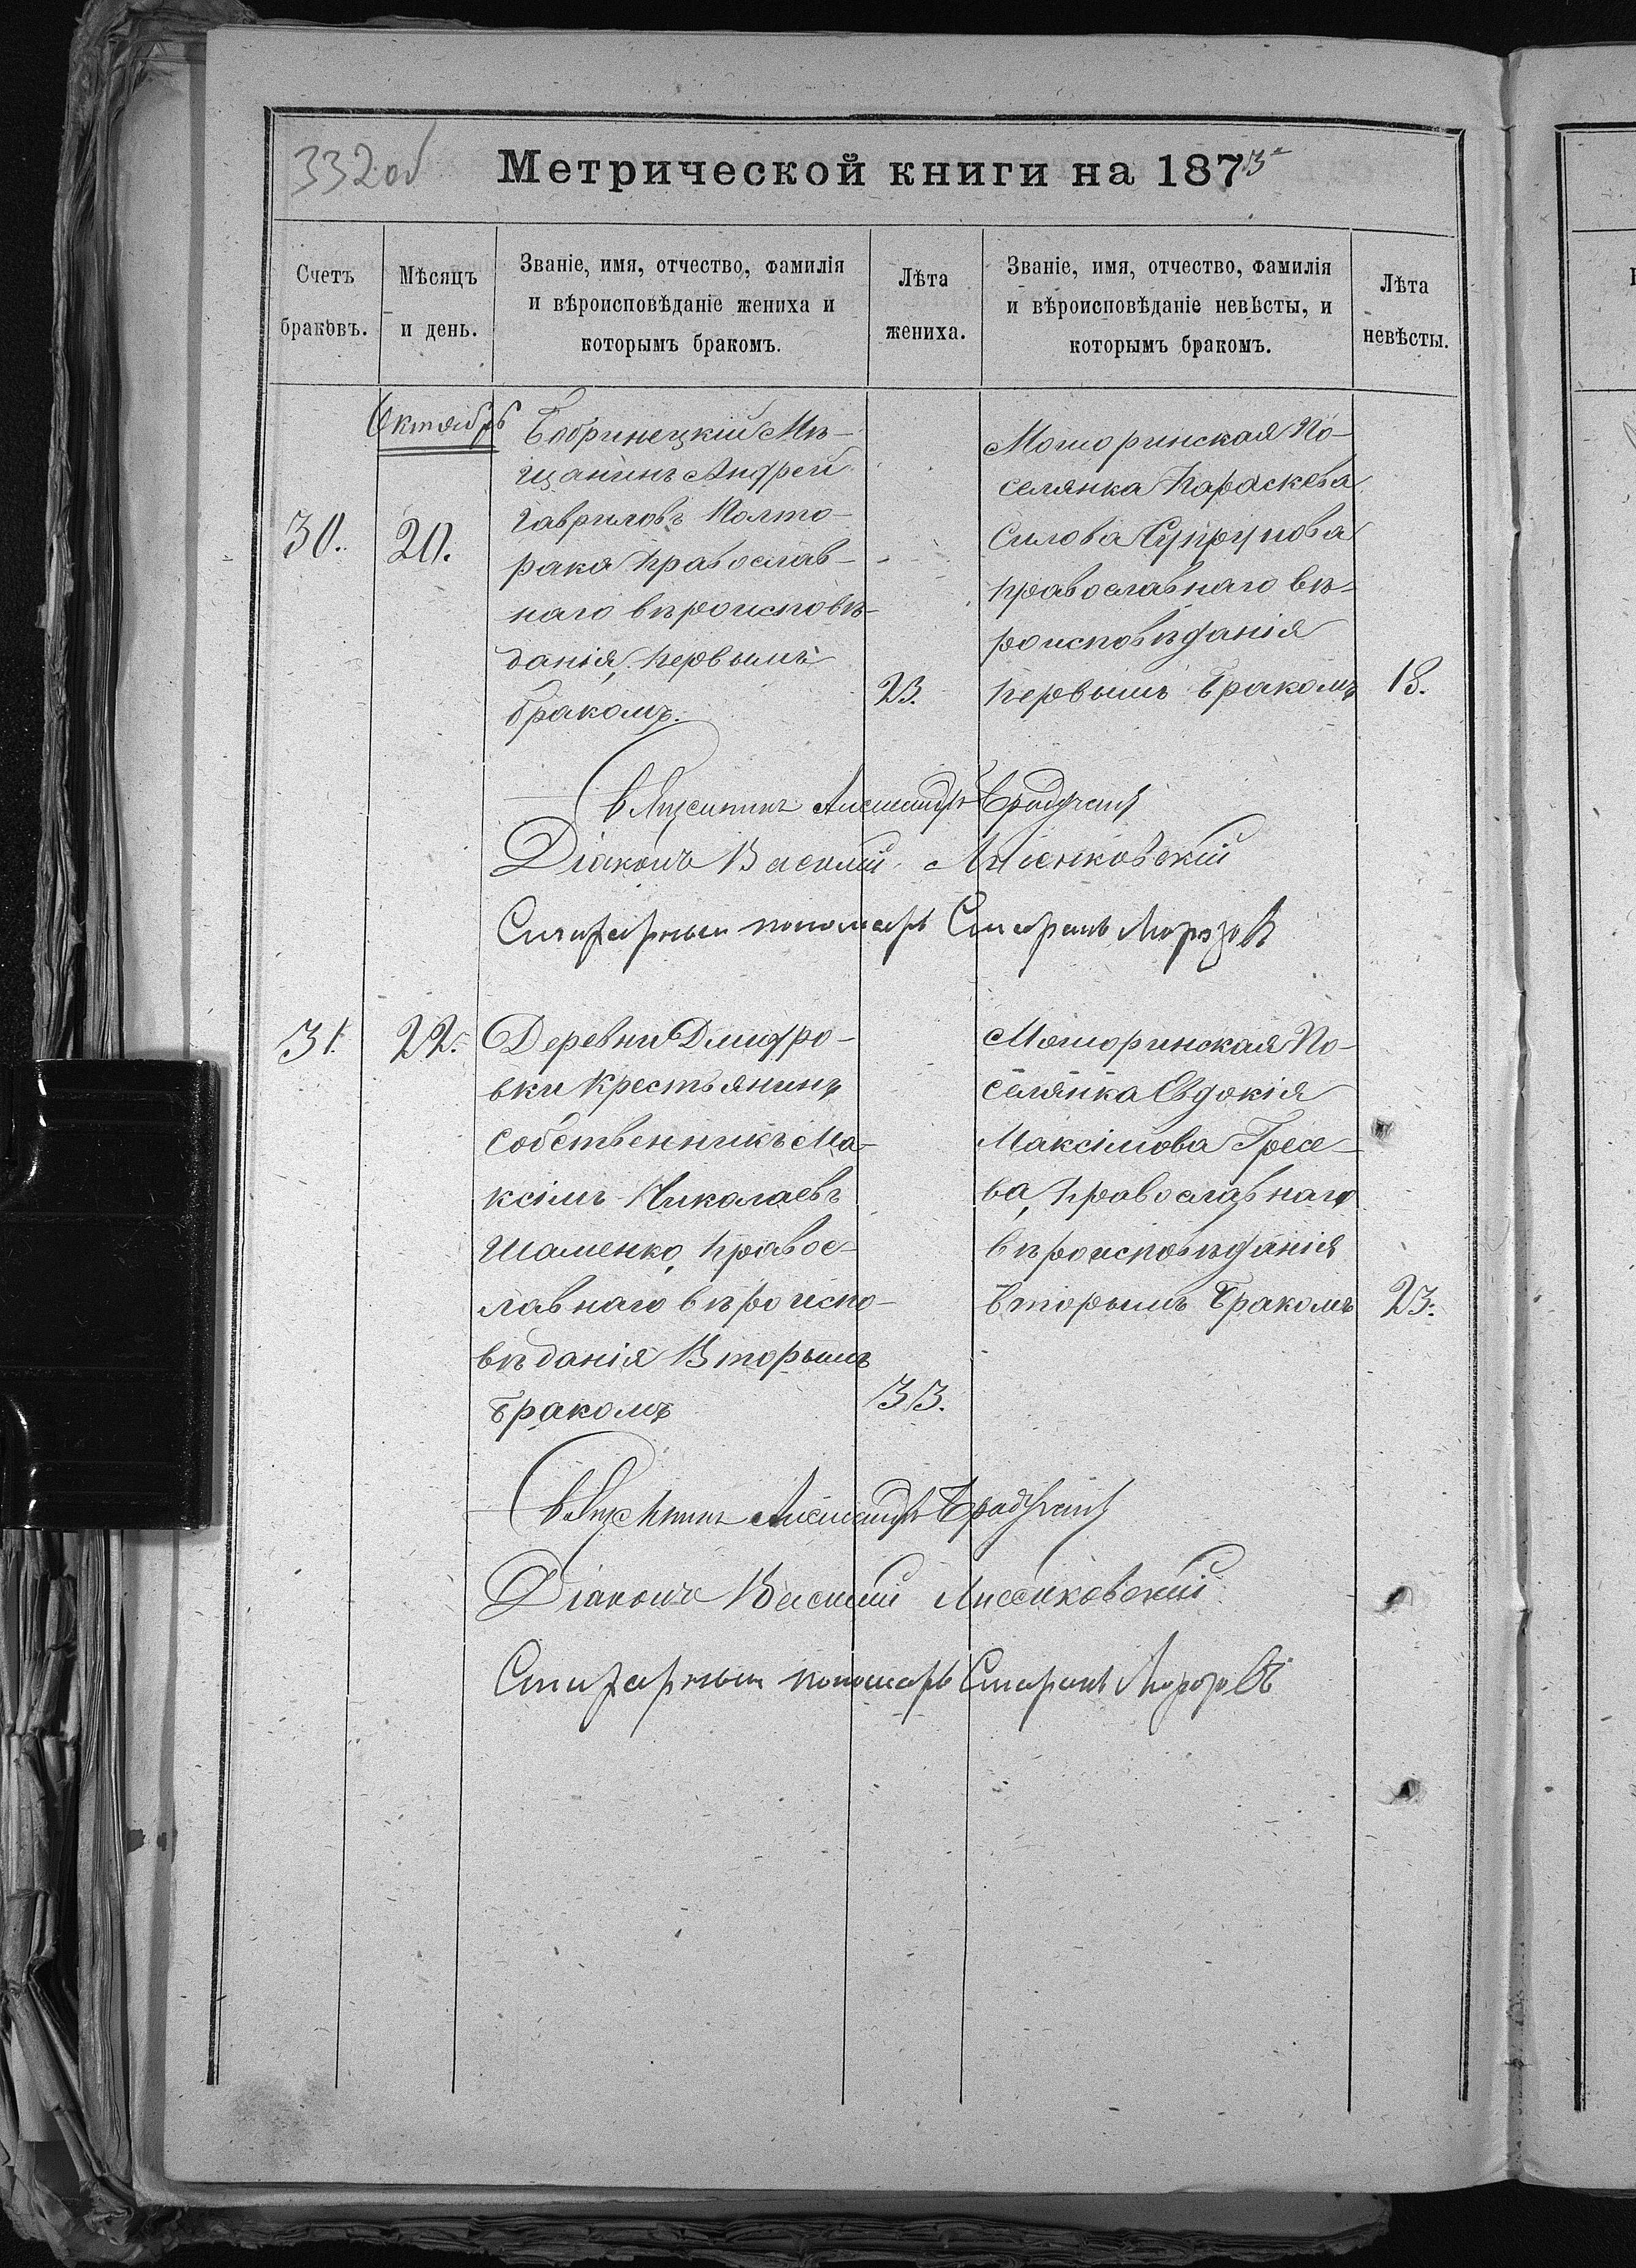 332об
Метрической книги на 1873
Счетъ браковъ.
Мѣсяцъ и день.
Званіе, имя, отчество, фамилія
и вѣроисповѣданіе жениха и
которымъ бракомъ.
Лѣта
жениха.
Званіе, имя, отчество, фамилія
и вѣроисповѣданіе невѣсты, и
которымъ бракомъ.
Лѣта
невѣсты.
Октябрь
30.
20.
Бобринецкій Мѣ-
щанинъ Андрей
Гавриловъ Полто-
рака православ-
наго вѣроисповѣ-
данія, первымъ
бракомъ.
23.
Мошоринская По-
селянка Параскева
Силова Супрунова
православнаго вѣ-
роисповѣданія
первымъ бракомъ
18.
Священникъ Александръ
Діаконъ Василій Лисенковскій
пономарь
31.
22.
Деревни Дмитро-
вки Крестьянинъ
Собственникъ Ма-
ксімъ Николаевъ
Шаменко, правос-
лавнаго вѣроиспо-
вѣданія Вторымъ
бракомъ
33.
Мошоринская По-
селянка Евдокія
Максімова Гресе-
ва, православнаго
вѣроисповѣданія
вторымъ бракомъ
23.
Священникъ Александръ
Діаконъ Василій Лисенковскій
пономарь